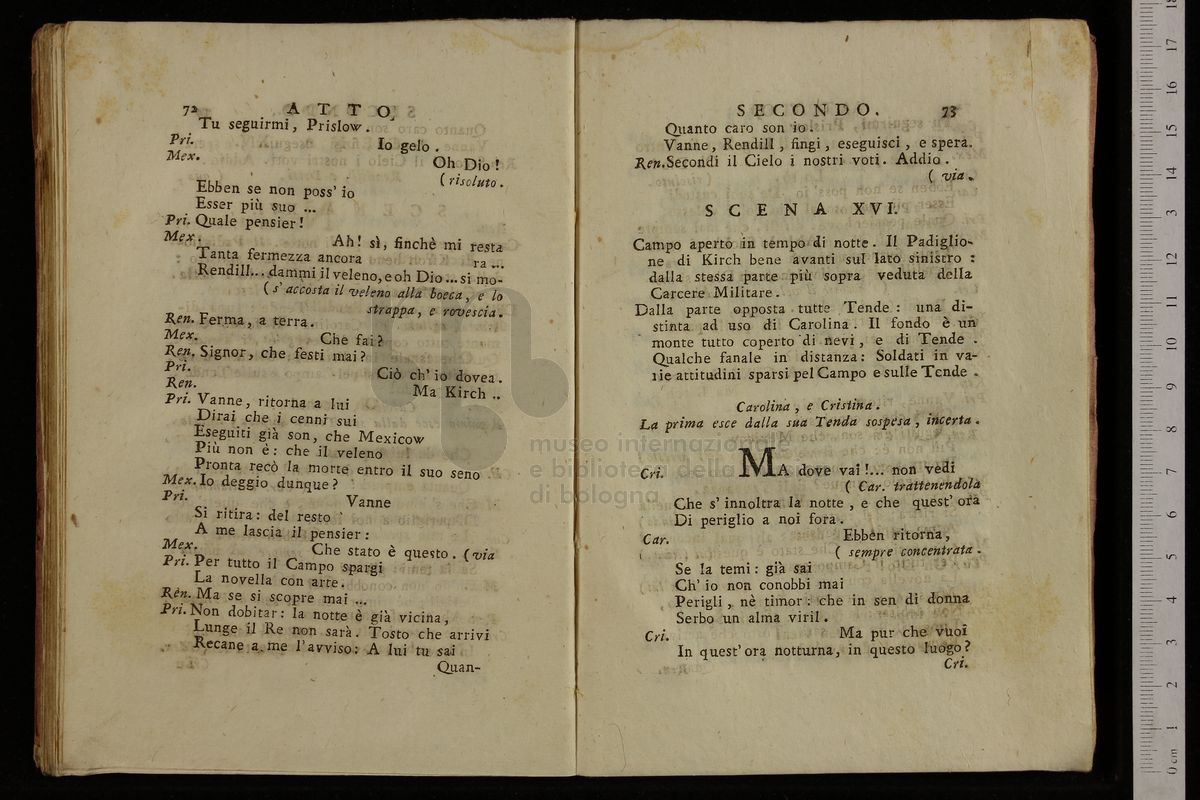 72 ATTO
Tu seguirmi, Prislow.
Pri. Io gelo.
Mex. Oh Dio!
(risoluto.
Ebben se non poss' io
Esser più suo ...
Pri. Quale pensier!
Mex. Ah! sì, finchè mi resta
Tanta fermezza ancora
ra ...
Rendill... dammi il veleno, e oh Dio ... si mo-
(s' accosta il veleno alla bocca, e lo
strappa, e rovescia.
Ren. Ferma, a terra.
Mex. Che fai?
Ren. Signor, che festi mai?
Pri. Ciò ch' io dovea.
Ren. Ma Kirch ..
Pri. Vanne, ritorna a lui
Dirai che i cenni sui
Eseguiti già son, che Mexicow
Più non è: che il veleno
Pronta recò la morte entro il suo seno
Mex. Io deggio dunque?
Pri. Vanne
Si ritira: del resto
A me lascia il pensier:
Mex. Che stato è questo. (via
Pri. Per tutto il Campo spargi
La novella con arte.
Ren. Ma se si scopre mai ...
Pri. Non dobitar: la notte è già vicina,
Lunge il Re non sarà. Tosto che arrivi
Recane a me l'avviso: A lui tu sai
Quan-
SECONDO. 73
Quanto caro son io.
Vanne, Rendill, fingi, eseguisci, e spera.
Ren. Secondi il Cielo i nostri voti. Addio.
(via.
SCENA XVI.
Campo aperto in tempo di notte. Il Padiglio-
ne di Kirch bene avanti sul lato sinistro:
dalla stessa parte più sopra veduta della
Carcere Militare.
Dalla parte opposta tutte Tende: una di-
stinta ad uso di Carolina. Il fondo è un
monte tutto coperto di nevi, e di Tende.
Qualche fanale in distanza: Soldati in va-
rie attitudini sparsi pel Campo e sulle Tende.
Carolina, e Cristina.
La prima esce dalla sua Tenda sospesa, incerta.
Cri. MA dove vai!... non vedi
(Car. trattenendola
Che s' innoltra la notte, e che quest' ora
Di periglio a noi fora.
Car. Ebben ritorna,
(sempre concentrata.
Se la temi: già sai
Ch' io non conobbi mai
Perigli, nè timor: che in sen di donna
Serbo un alma viril.
Cri. Ma pur che vuoi
In quest' ora notturna, in questo luogo?
Cri.
museo internazionale
e biblioteca della
di bologna
0 cm 1 2 3 4 5 6 7 8 9 10 11 12 13 14 15 16 17 18